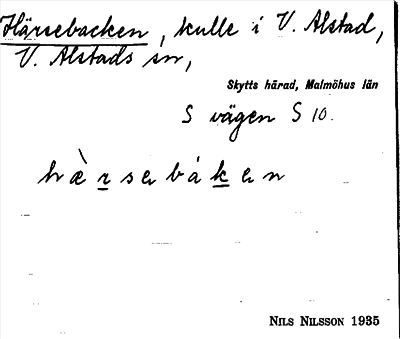 Härsebacken, kulle i V. Alstad,
V. Alstads sn,
Skytts härad, Malmöhus län
S vägen S 10.
hæ̀rsəbákən
NILS NILSSON 1935